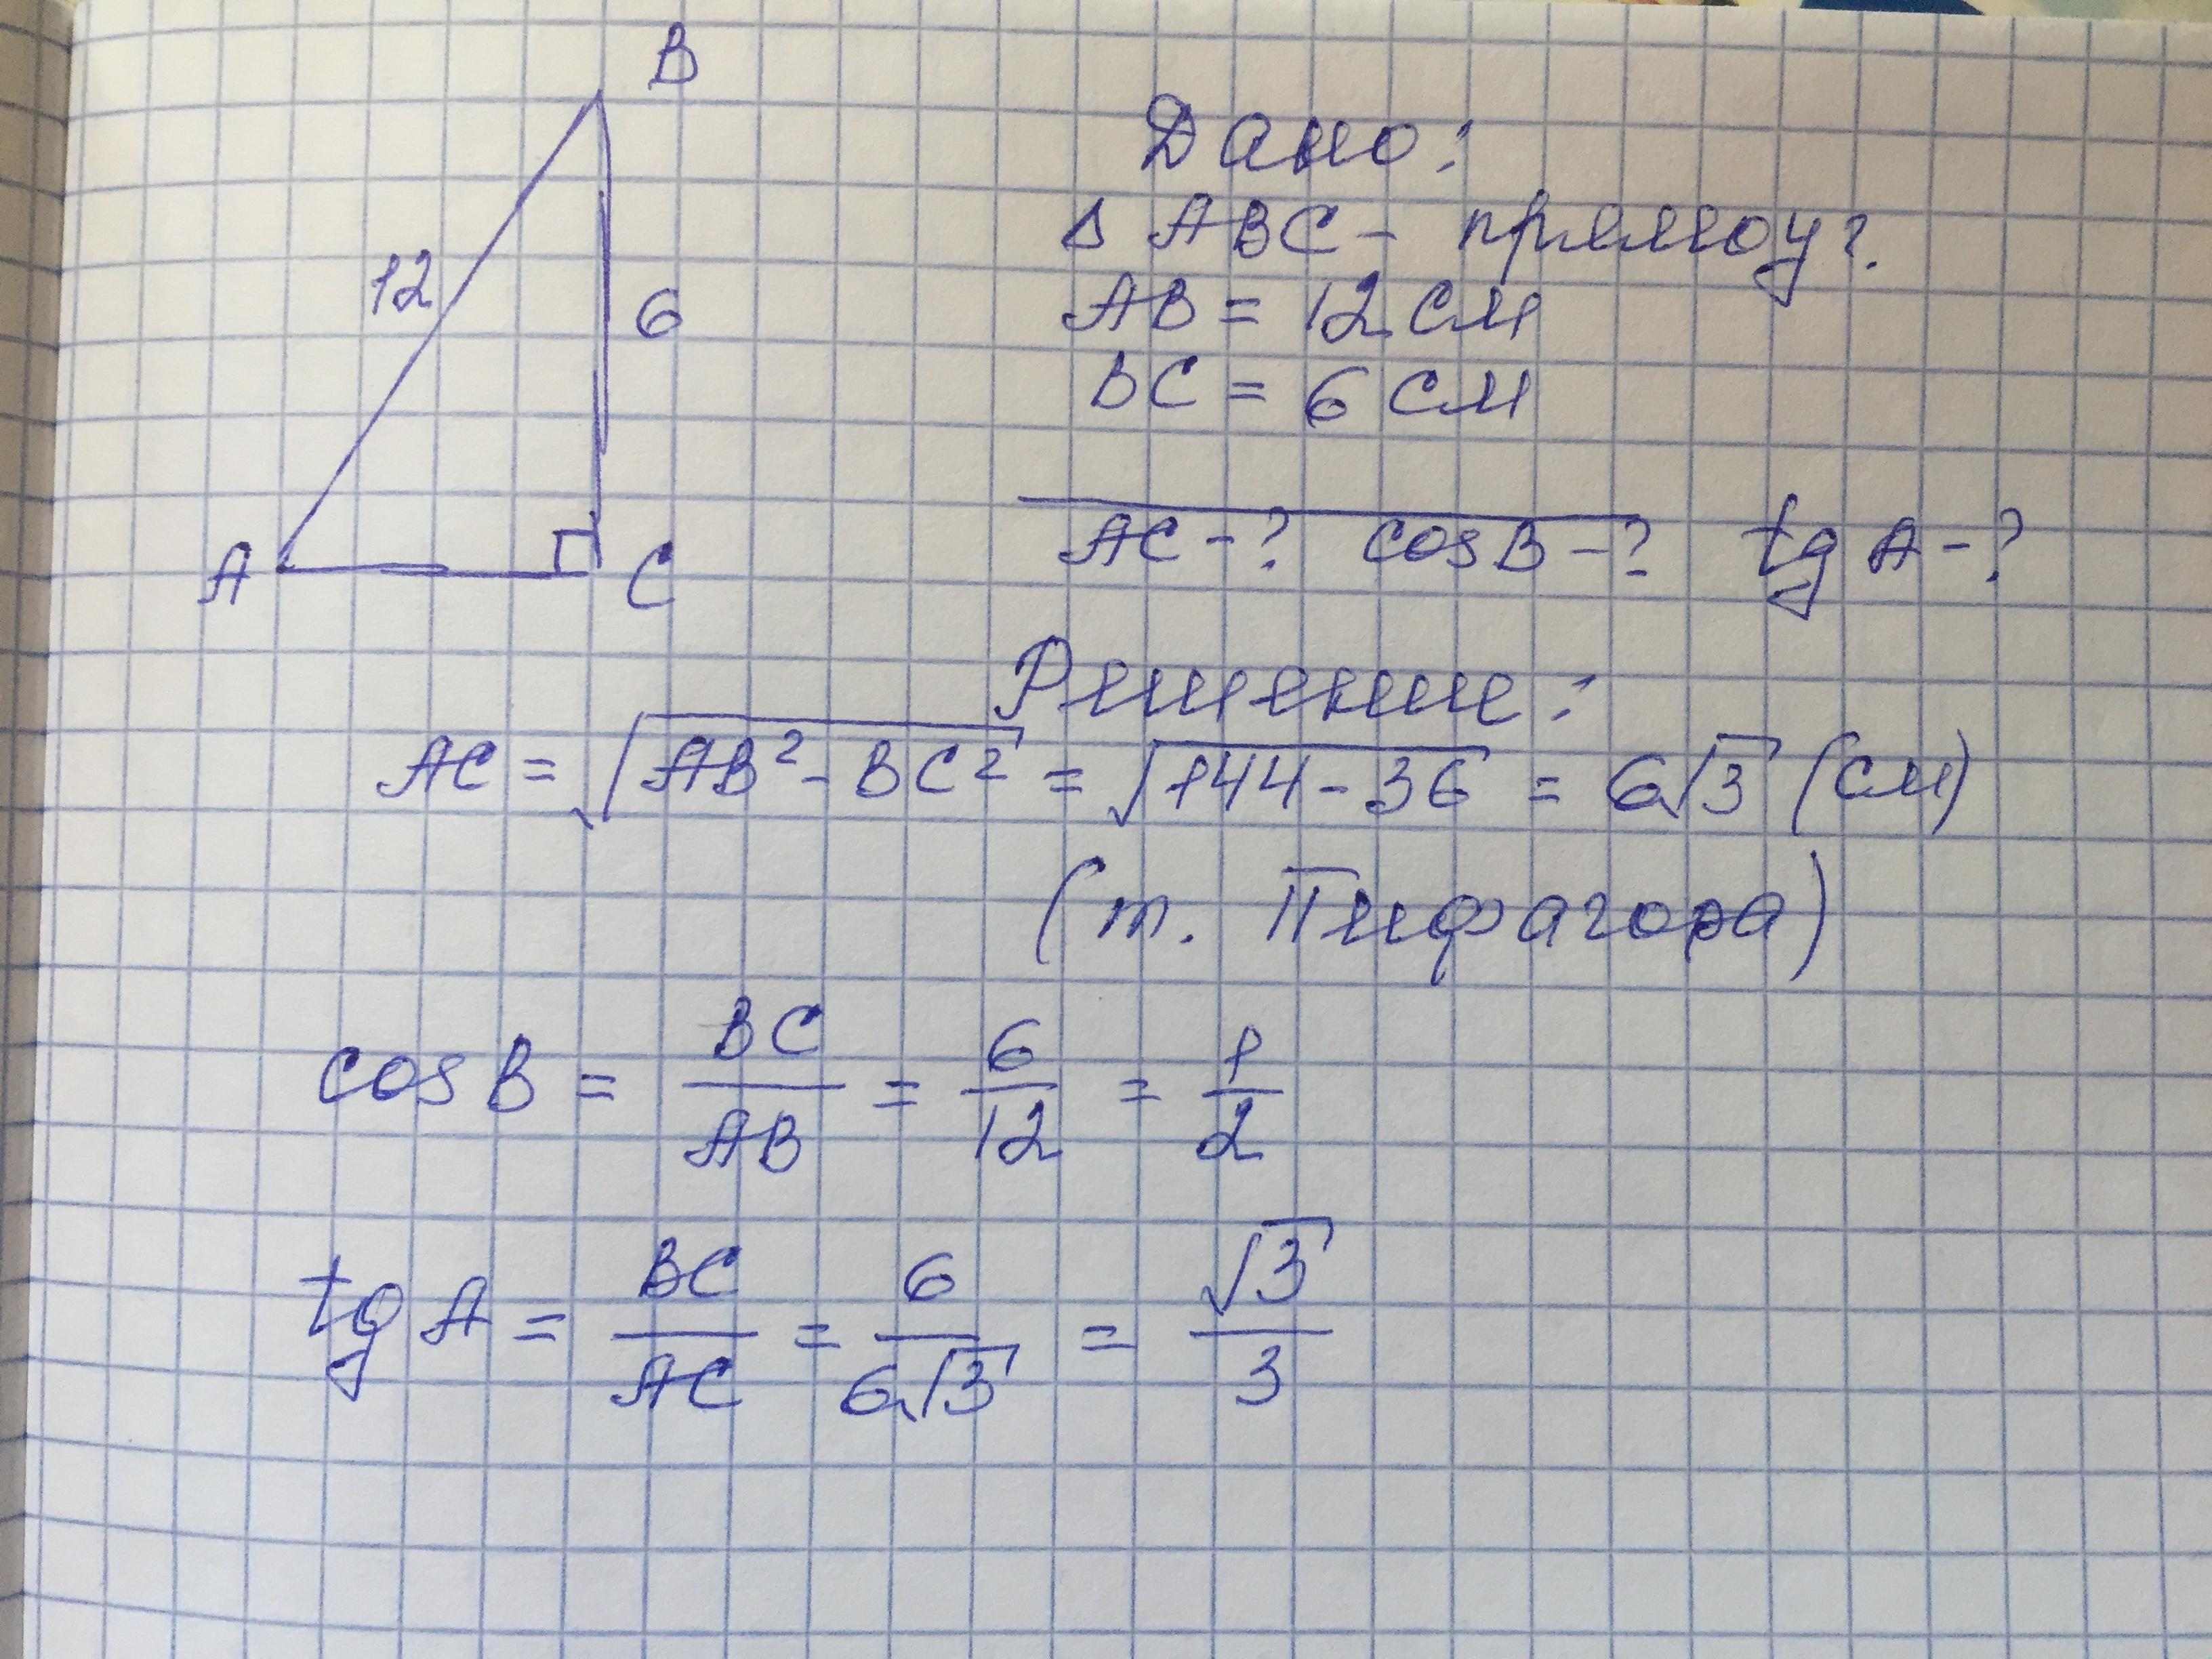 B
12
6
A
C
Дано:
Δ ABC - прямоуг.
AB = 12 см
BC = 6 см
AC - ? cos B - ? tg A - ?
Решение:
AC = √(AB² - BC²) = √(144 - 36) = 6√3 (см)
(т. Пифагора)
cos B = BC/AB = 6/12 = 1/2
tg A = BC/AC = 6/6√3 = √3/3